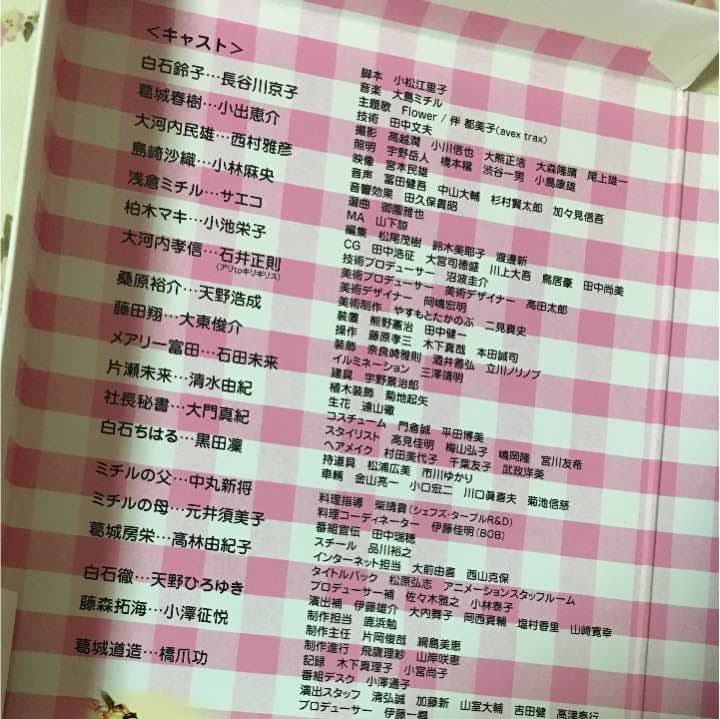 ＜キャスト＞
白石鈴子…長谷川京子
葛城春樹…小出恵介
大河内民雄…西村雅彦
島崎沙織…小林麻央
浅倉ミチル…サエコ
柏木マキ…小池栄子
大河内孝信…石井正則
(アリtoキリギリス)
桑原裕介…天野浩成
藤田翔…大東俊介
メアリー富田…石田未来
片瀬未来…清水由紀
社長秘書…大門真紀
白石ちはる…黒田凜
ミチルの父…中丸新将
ミチルの母…元井須美子
葛城房栄…高林由紀子
白石徹…天野ひろゆき
藤森拓海…小澤征悦
葛城道造…橋爪功
脚本 小松江里子
音楽 大島ミチル
主題歌 Flower / 伴 都美子(avex trax)
技術 田中文夫
撮影 高越潤 小川信也 大熊正浩 大森隆晴 尾上雄一
照明 宇野岳人 橋本稔 渋谷一男 小島康雄
映像 宮本民雄
音声 冨田健吾 中山大輔 杉村賢太郎 加々見信吾
音響効果 田久保貴昭
選曲 御園雅也
MA 山下諒
編集 松尾茂樹 鈴木美耶子 渡邊新
CG 田中浩征 大宮司徳盛 川上大吾 鳥居豪 田中尚美
技術プロデューサー 沼波圭介
美術プロデューサー 美術デザイナー 高田太郎
美術デザイナー 岡嶋宏明
美術制作 やすもとたかのぶ 二見真史
装置 熊野憲治 田中健一
操作 藤原孝三 木下真哉 本田誠司
装飾 奈良崎雅則 酒井善弘 立川ノリノブ
イルミネーション 三澤清明
建具 宇野景治郎
植木装飾 菊地起矢
生花 遠山徹
コスチューム 門倉誠 平田博美
スタイリスト 高見佳明 梅山弘子 嶋岡隆 宮川友希
ヘアメイク 村田美代子 千葉友子 武政洋美
持道具 松浦広美 市川ゆかり
車輛 金山亮一 小口宏二 川口眞喜夫 菊池信慈
料理指導 柴靖貴(シェフズ・テーブルR&D)
料理コーディネーター 伊藤佳寿(BOB)
番組宣伝 田中瑞穂
スチール 品川裕之
インターネット担当 大前由喜 西山克保
タイトルバック 松原弘志 アニメーションスタッフルーム
プロデューサー補 佐々木雅之 小林泰子
演出補 伊藤雄介 大内舞子 岡西真輔 塩村香里 山﨑寛幸
制作担当 鹿浜勉
制作主任 片岡俊哉 綱島美恵
制作進行 飛鷹理紗 山岸咲恵
記録 木下真理子 小宮尚子
番組デスク 小澤通子
演出スタッフ 清弘誠 加藤新 山室大輔 吉田健 高澤奉行
プロデューサー 伊藤一尋